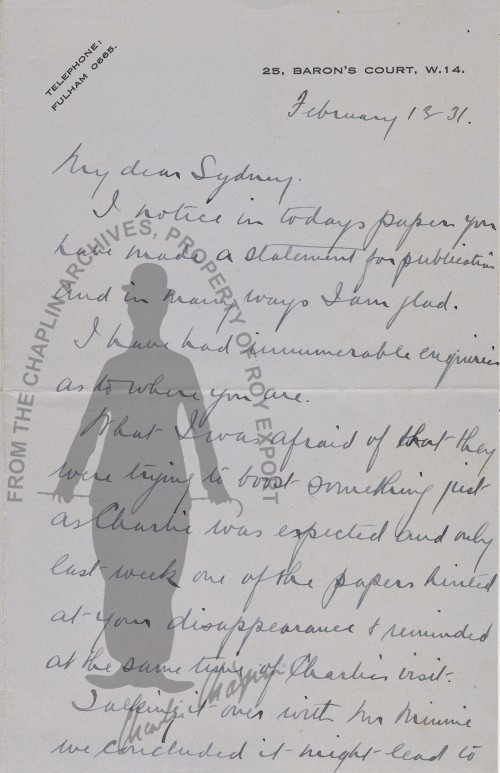 TELEPHONE:
FULHAM 0665.
25, BARON'S COURT, W.14.
February 13 31.
My dear Sydney.
I notice in todays papers you
have made a statement for publication
and in many ways I am glad.
I have had innumerable enquiries
as to where you are.
What I was afraid of that they
were trying to boost something just
as Charlie was expected and only
last week one of the papers hinted
at your disappearance & reminded
at the same time of Charlies visit.
Talking it over with Mr Minnie
we concluded it might lead to
FROM THE CHAPLIN ARCHIVES, PROPERTY OF ROY EXPORT
Charlie Chaplin